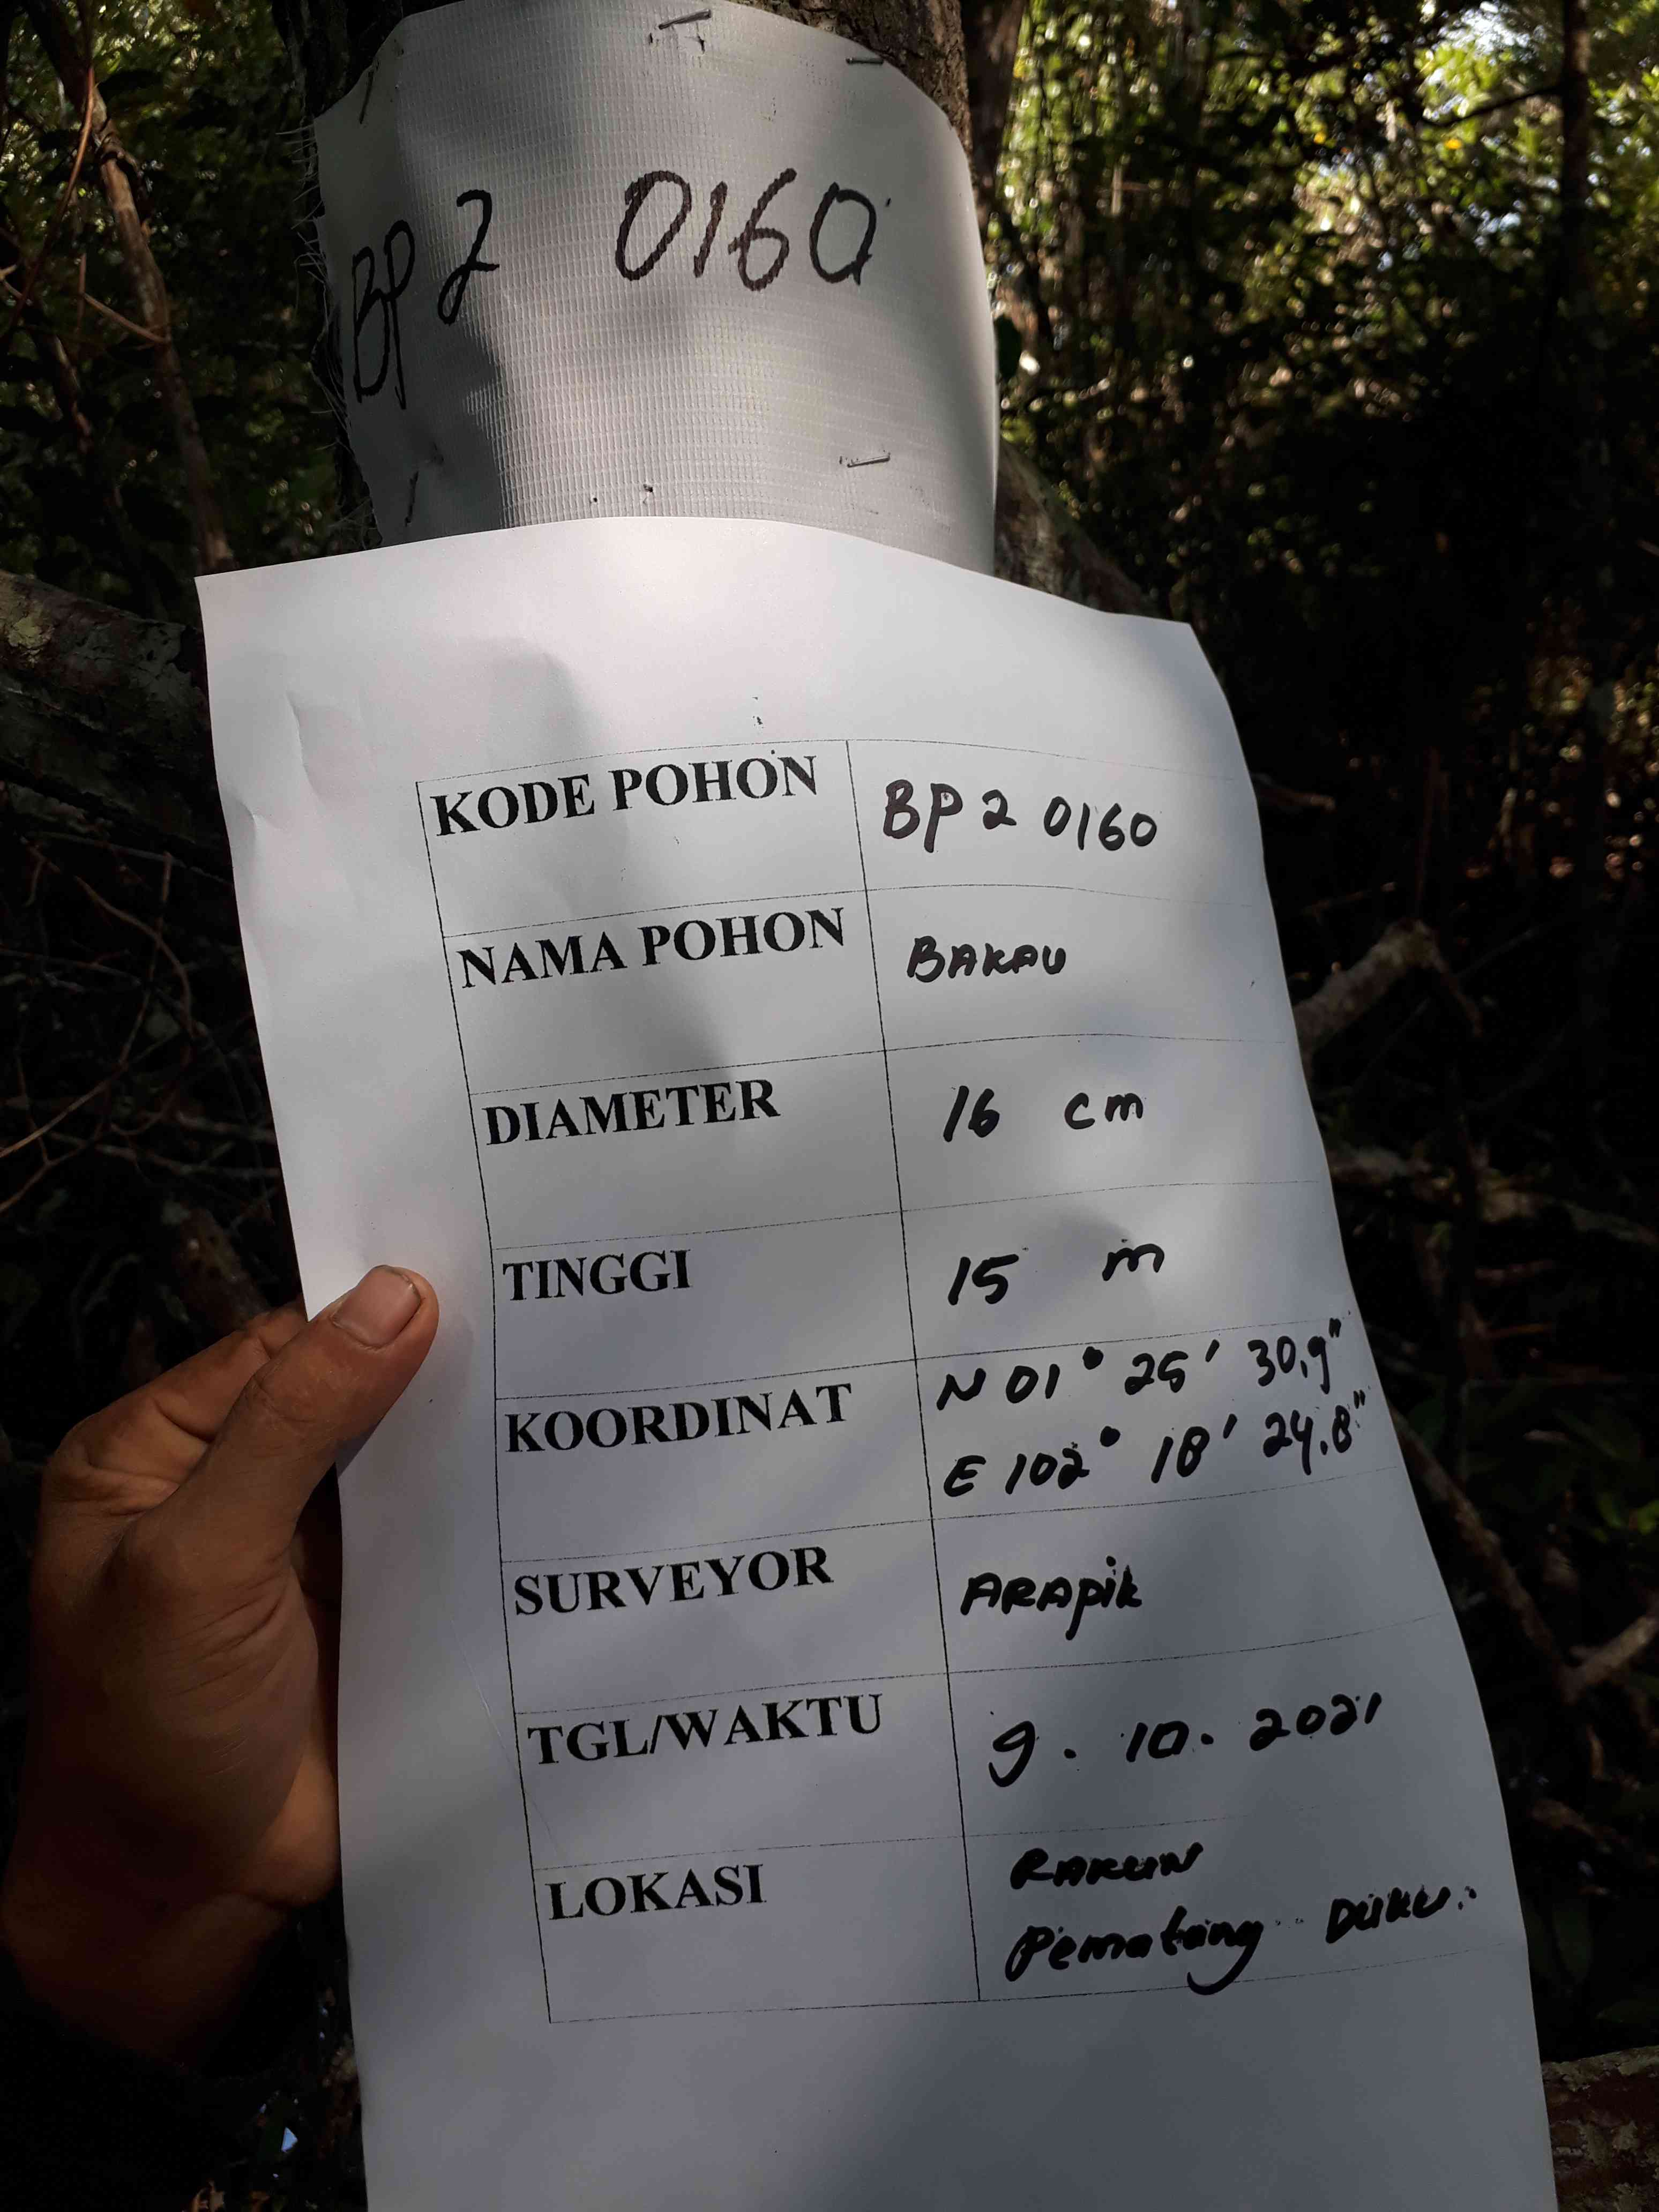 BP 2 0160
KODE POHON BP 2 0160
NAMA POHON BAKAU
DIAMETER 16 cm
TINGGI 15 m
KOORDINAT N 01° 25' 30,9"
E 102° 18' 24.8"
SURVEYOR ARApik
TGL/WAKTU 9. 10. 2021
LOKASI RAKUN
Pematang DUKU.